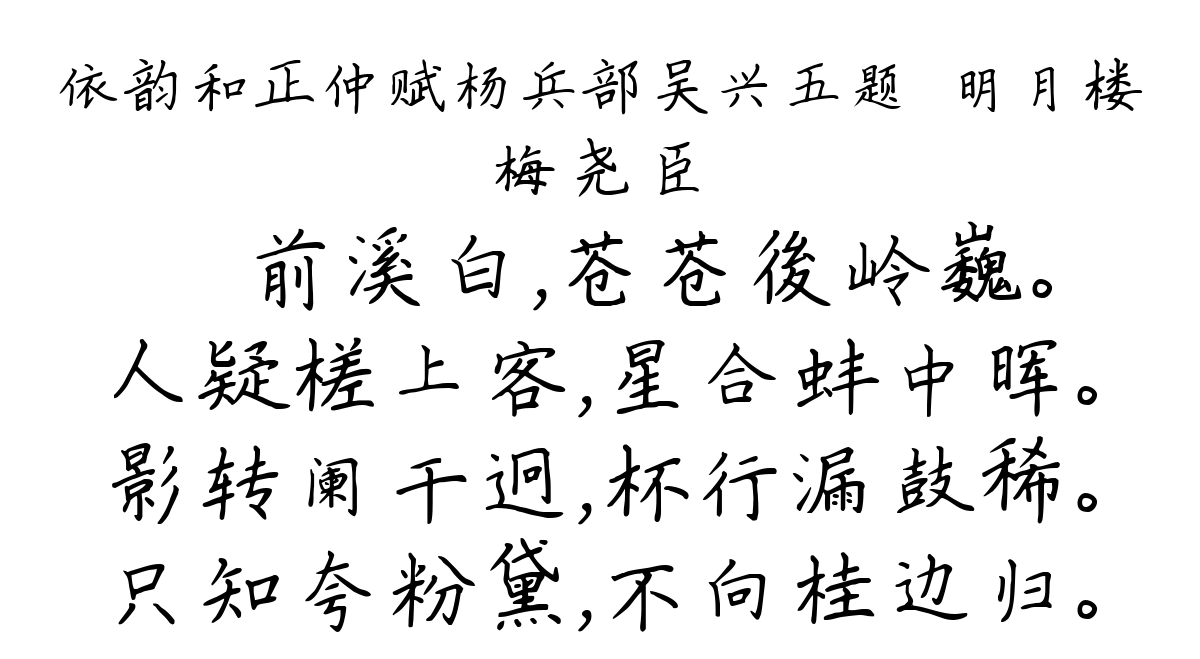 依韵和正仲赋杨兵部吴兴五题 明月楼
梅尧臣
前溪白,苍苍後岭巍。
人疑槎上客,星合蚌中晖。
影转阑干迥,杯行漏鼓稀。
只知夸粉黛,不向桂边归。